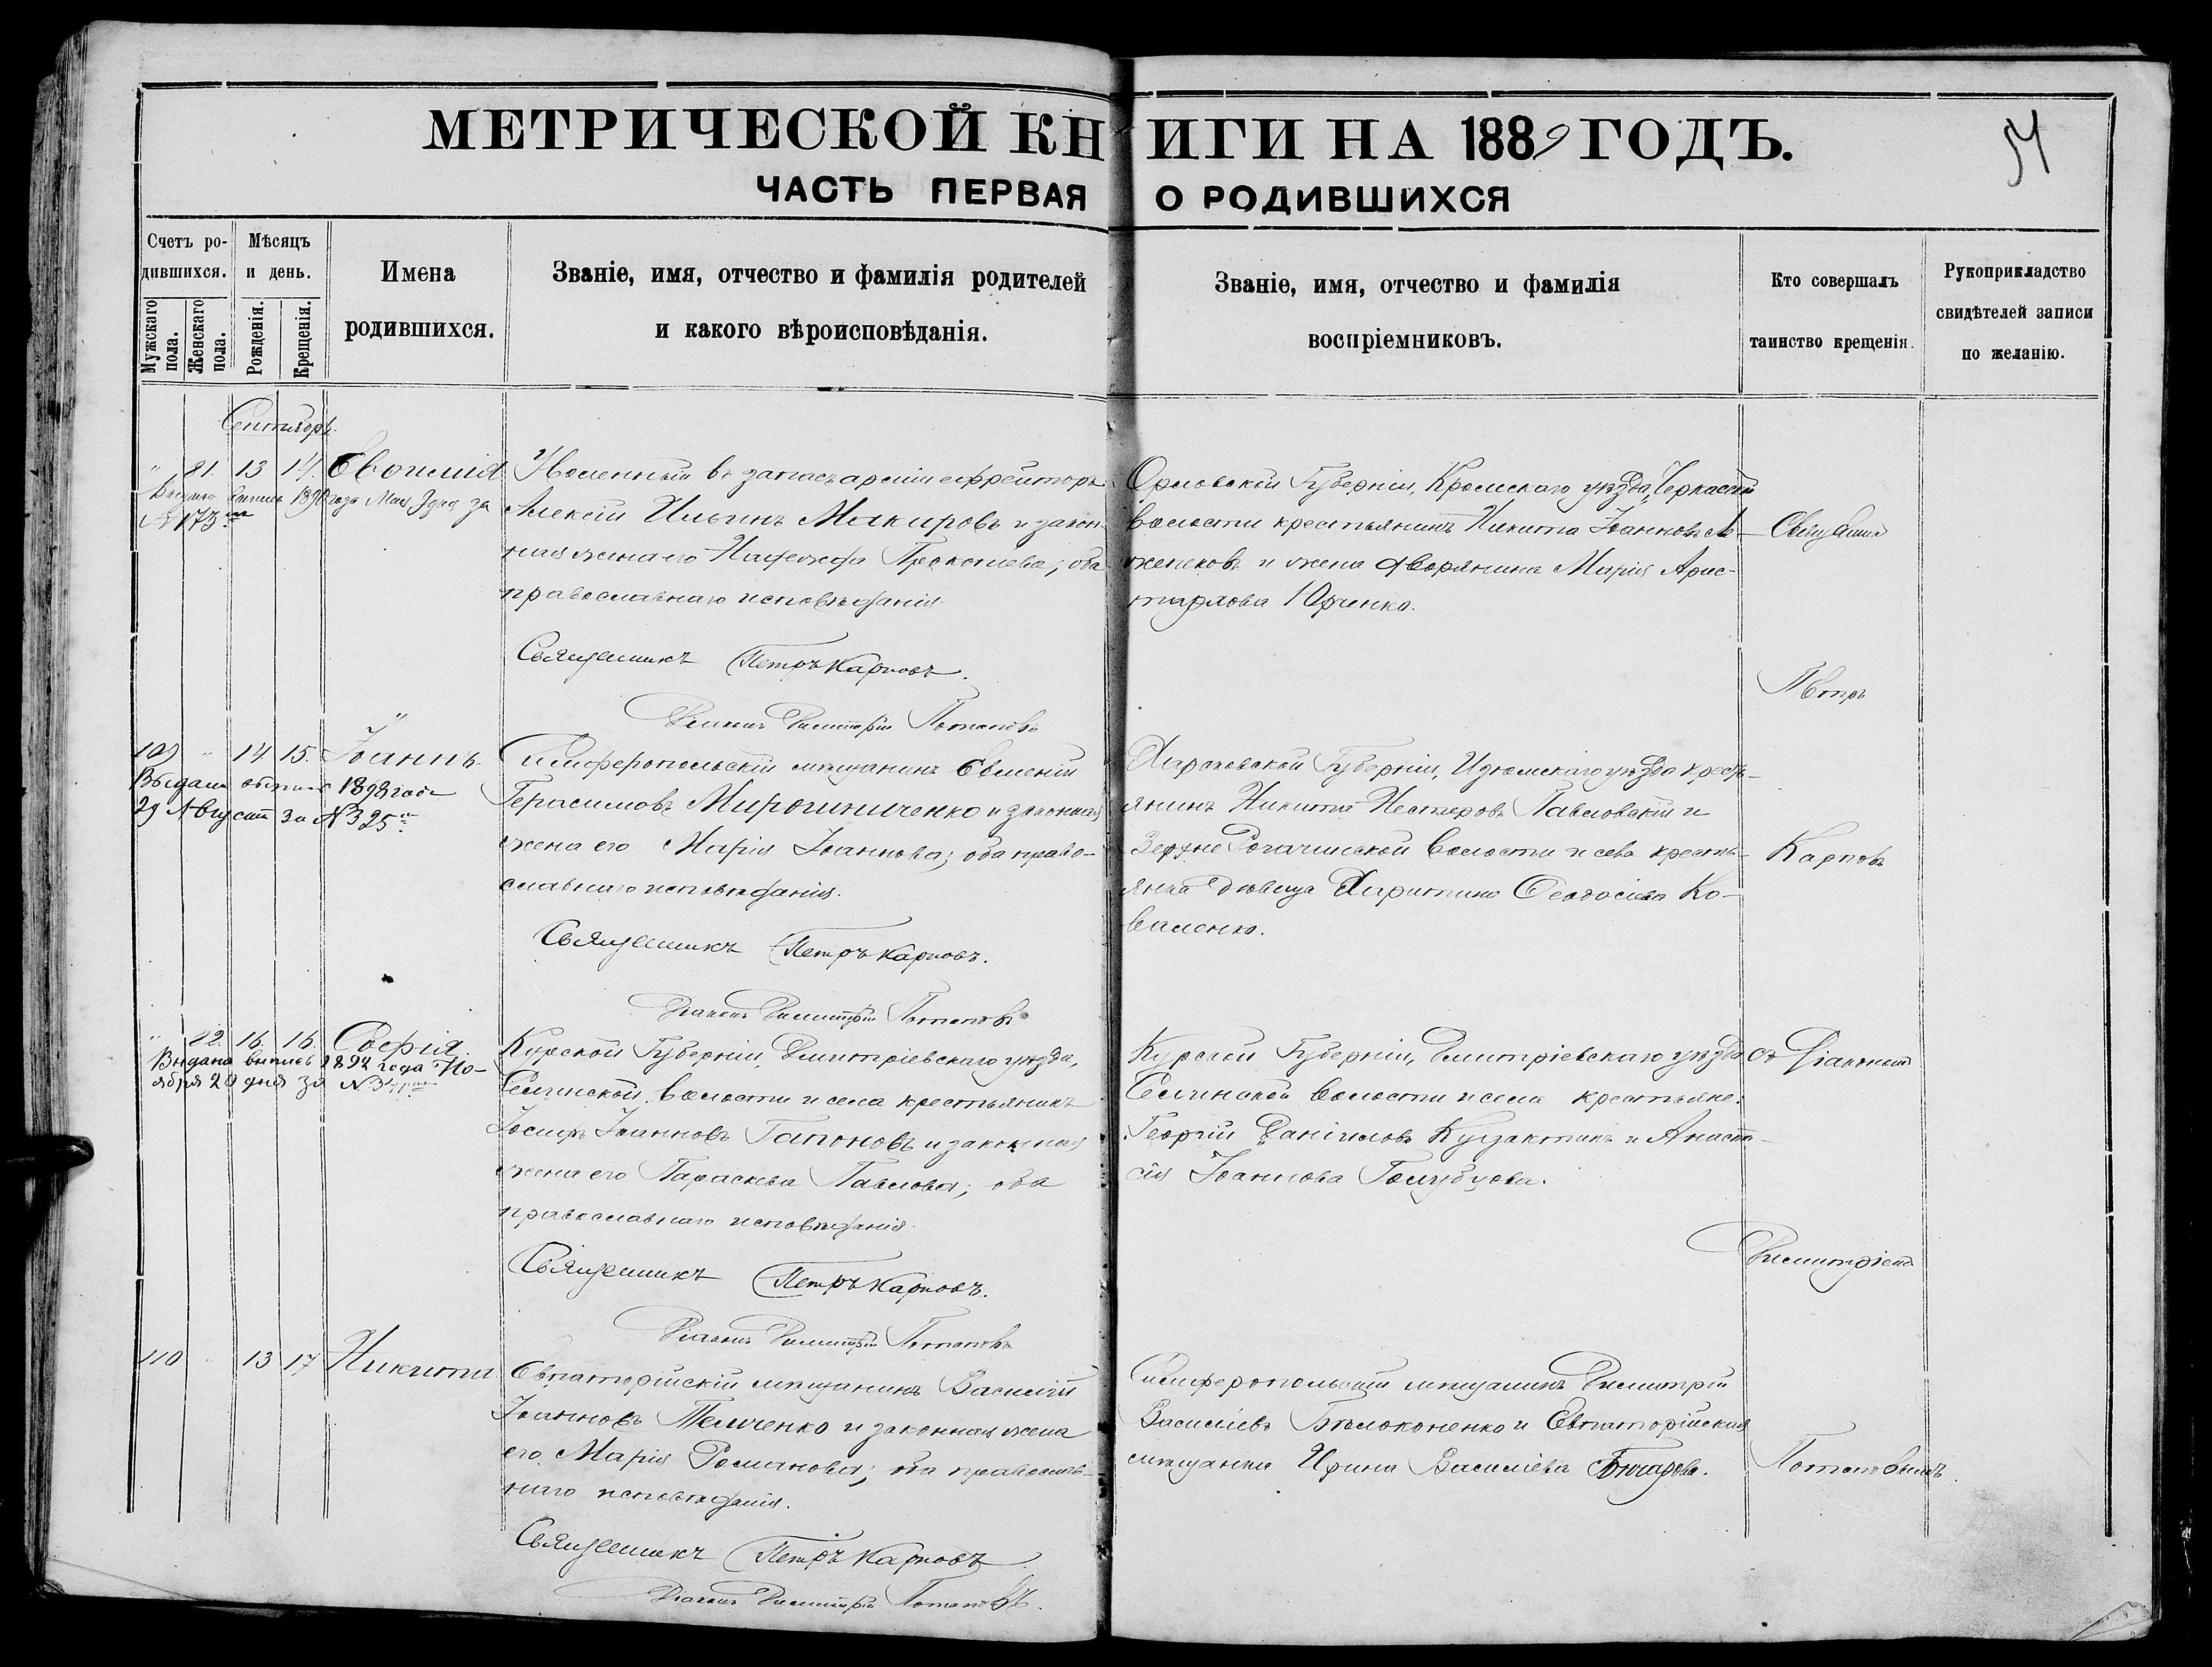 МЕТРИЧЕСКОЙ КНИГИ НА 1889 ГОДЪ.
51
ЧАСТЬ ПЕРВАЯ О РОДИВШИХСЯ
Счетъ родившихся.
Мужскаго пола.
Женскаго пола.
Мѣсяцъ и день.
Рожденія.
Крещенія.
Имена
родившихся.
Званіе, имя, отчество и фамилія родителей
и какого вѣроисповѣданія.
Званіе, имя, отчество и фамилія
воспріемниковъ.
Кто совершалъ
таинство крещенія.
Рукоприкладство
свидѣтелей записи
по желанію.
Сентябрь
" 81. 13 14
за
№ 173
въ запасъ арміи ефрейторъ
Алексій Ильинъ Макировъ и закон-
ная жена его Надежда Прокопіева; оба
православнаго исповѣданія.
Священникъ Петръ Карповъ.
Діаконъ Димитрій Потаповъ
Орловской Губерніи, Кромскаго уѣзда,
волости крестьянинъ Никита Іоанновъ
и жена дворянина Марія Арис-
тархова Юрченко.
109 " 14 15. Іоаннъ.
Выдана выпись 1898 года
29 Августа за № 325
Симферопольскій мѣщанинъ Евменій
Герасимовъ Мирошниченко и законная
жена его Марія Іоаннова; оба право-
славнаго исповѣданія.
Священникъ Петръ Карповъ.
Діаконъ Димитрій Потаповъ
Харьковской Губерніи, Изюмскаго уѣзда кресть-
янинъ Никита Нестеровъ Павловскій и
Верхне Рогачинской волости и села кресть-
янка дѣвица Харитина Ѳеодосіева Ко-
валенко.
" 82. 16. 16. Софія.
Выдана выпись 1894 года Но-
ября 20 дня за №
Курской Губерніи, Димитріевскаго уѣзда,
волости и села крестьянинъ
Іосифъ Іоанновъ Гапоновъ и законная
жена его Параскева Павлова; оба
православнаго исповѣданія.
Священникъ Петръ Карповъ.
Діаконъ Димитрій Потаповъ
Курской Губерніи, Димитріевскаго уѣзда
волости и села крестьяне:
Георгій Даніиловъ и Анаста-
сія Іоаннова Голубцова.
110 " 13 17 Никита
Евпаторійскій мѣщанинъ Василій
Іоанновъ и законная жена
его Марія Романова; оба православ-
наго исповѣданія.
Священникъ Петръ Карповъ
Діаконъ Димитрій Потаповъ.
Симферопольскій мѣщанинъ Димитрій
Василіевъ Бѣлоконенко и Евпаторійская
мѣщанка Ирина Василіева
Священникъ
Петръ
Карповъ
съ Діакономъ
Димитріемъ
Потаповымъ.